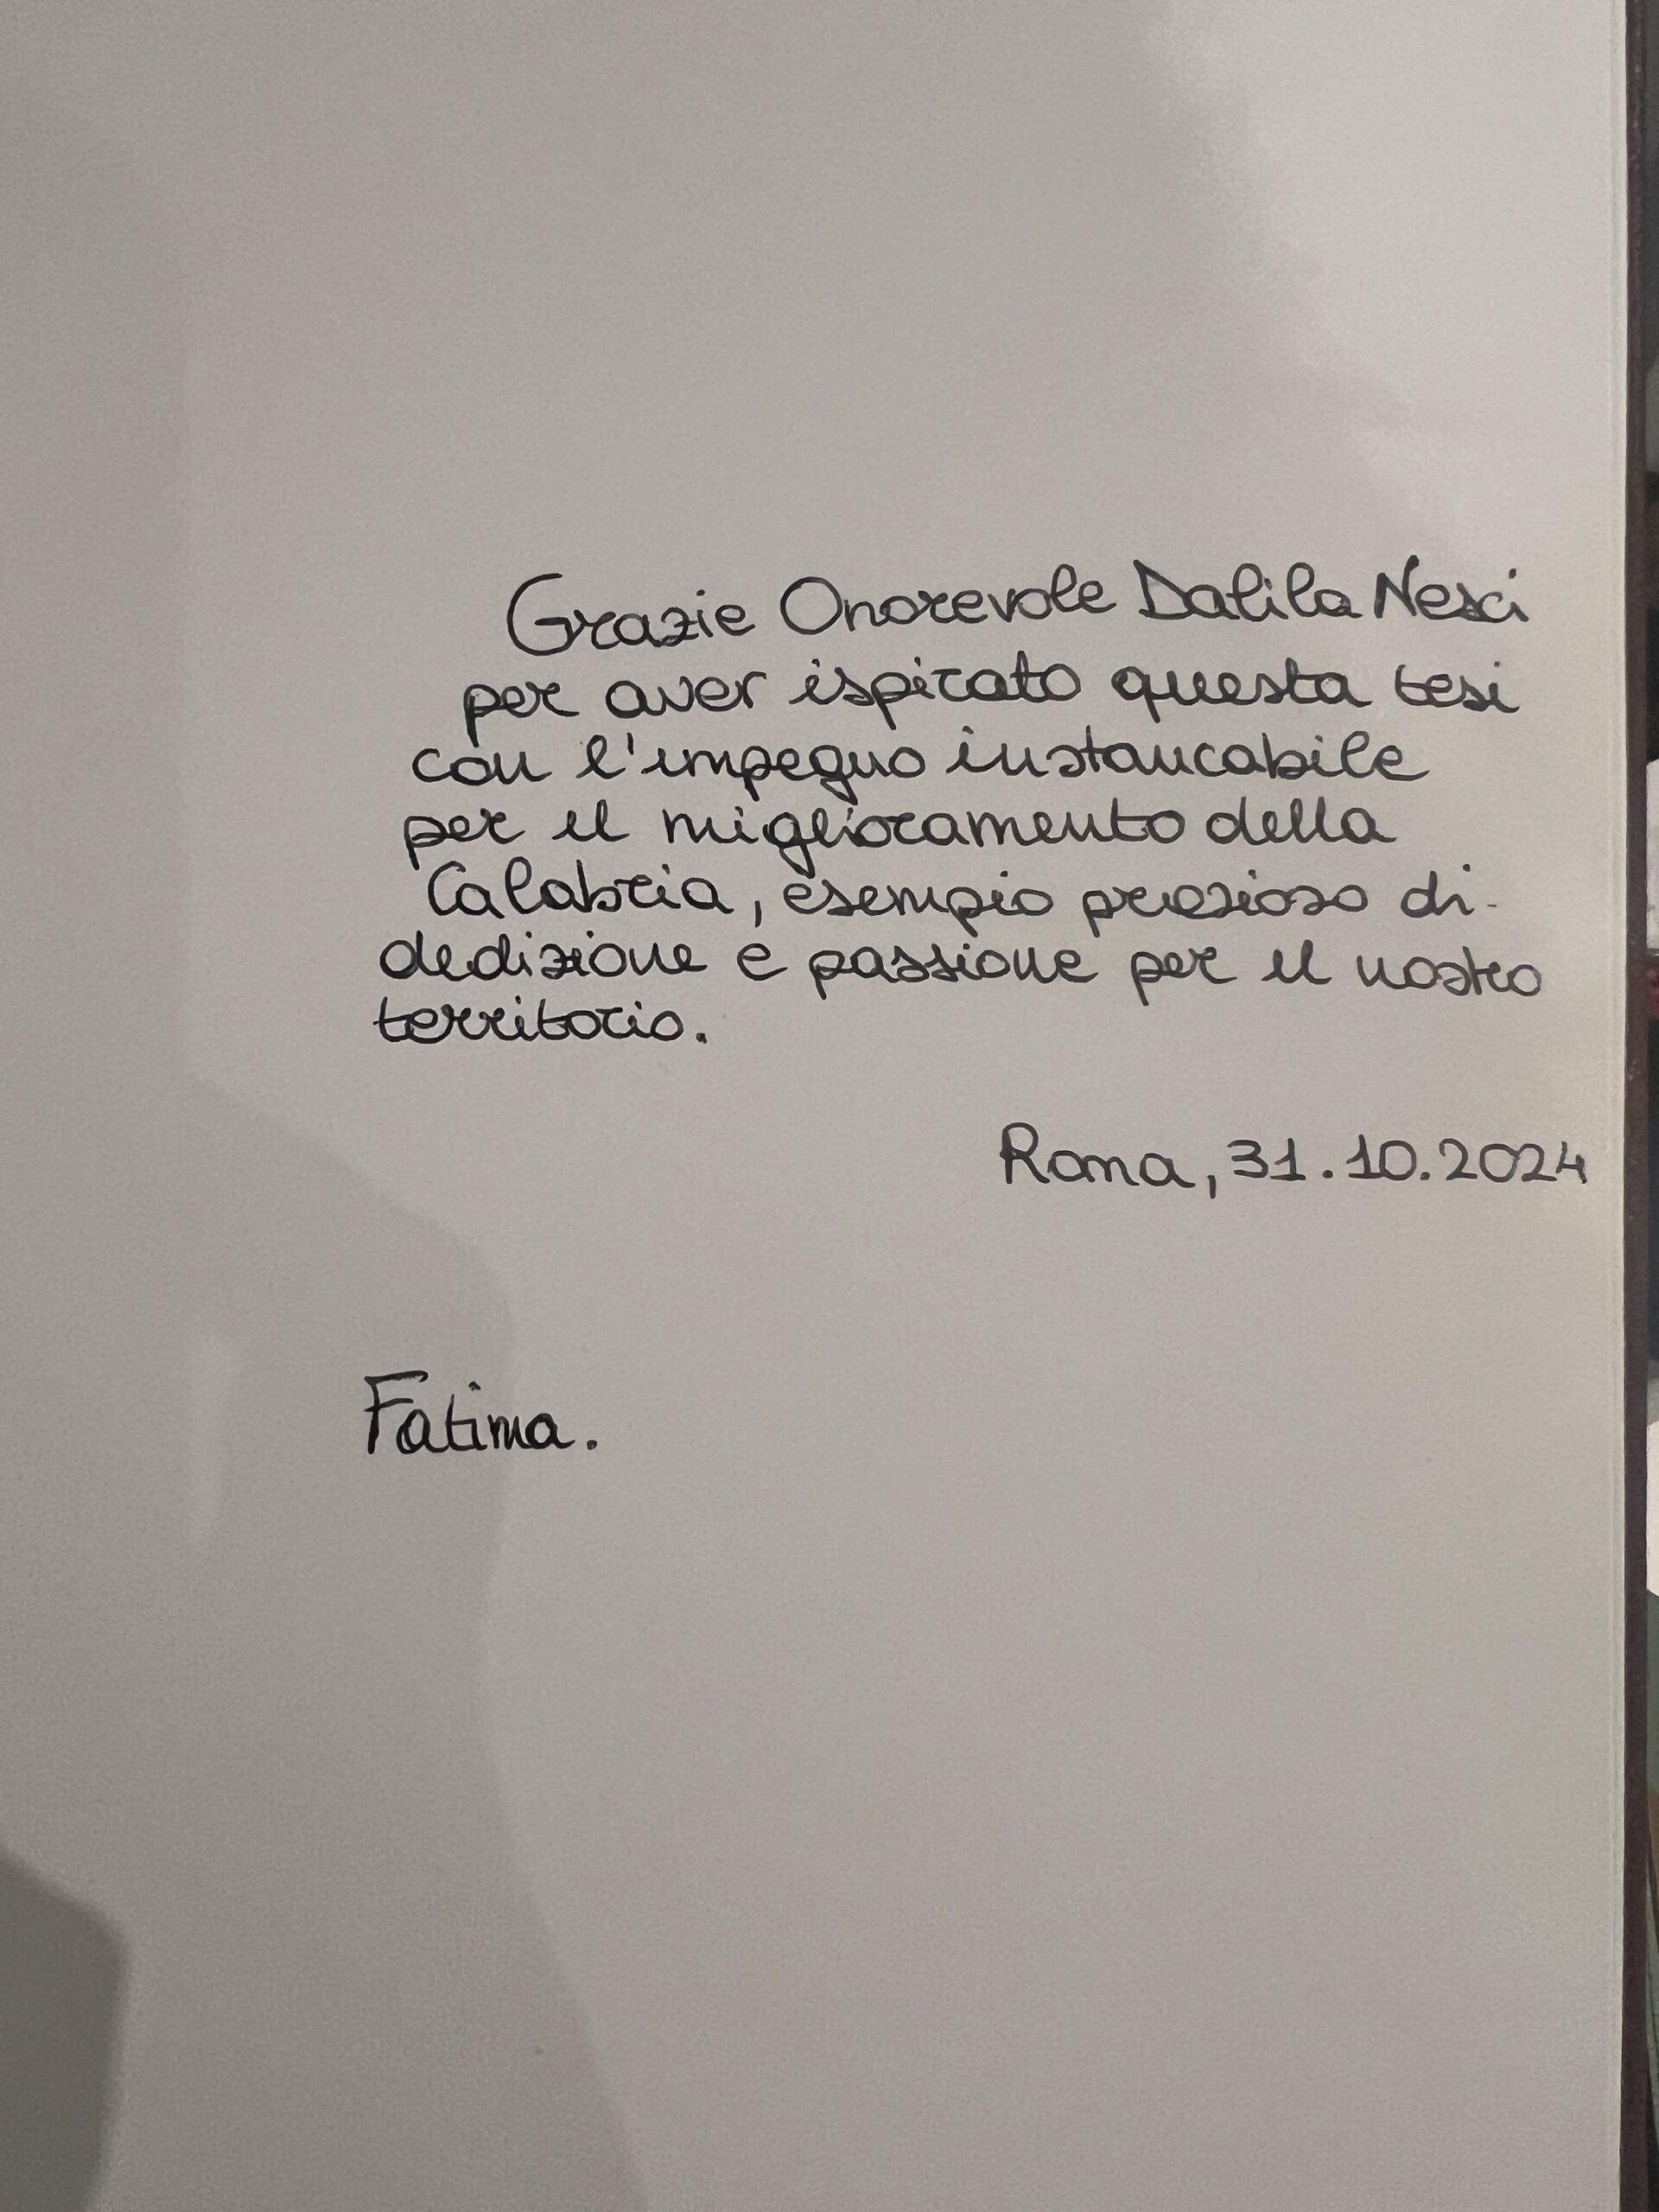 Grazie Onorevole Dalila Nesci
per aver ispirato questa tesi
con l'impegno instancabile
per il miglioramento della
Calabria, esempio prezioso di
dedizione e passione per il nostro
territorio.
Roma, 31.10.2024
Fatima.